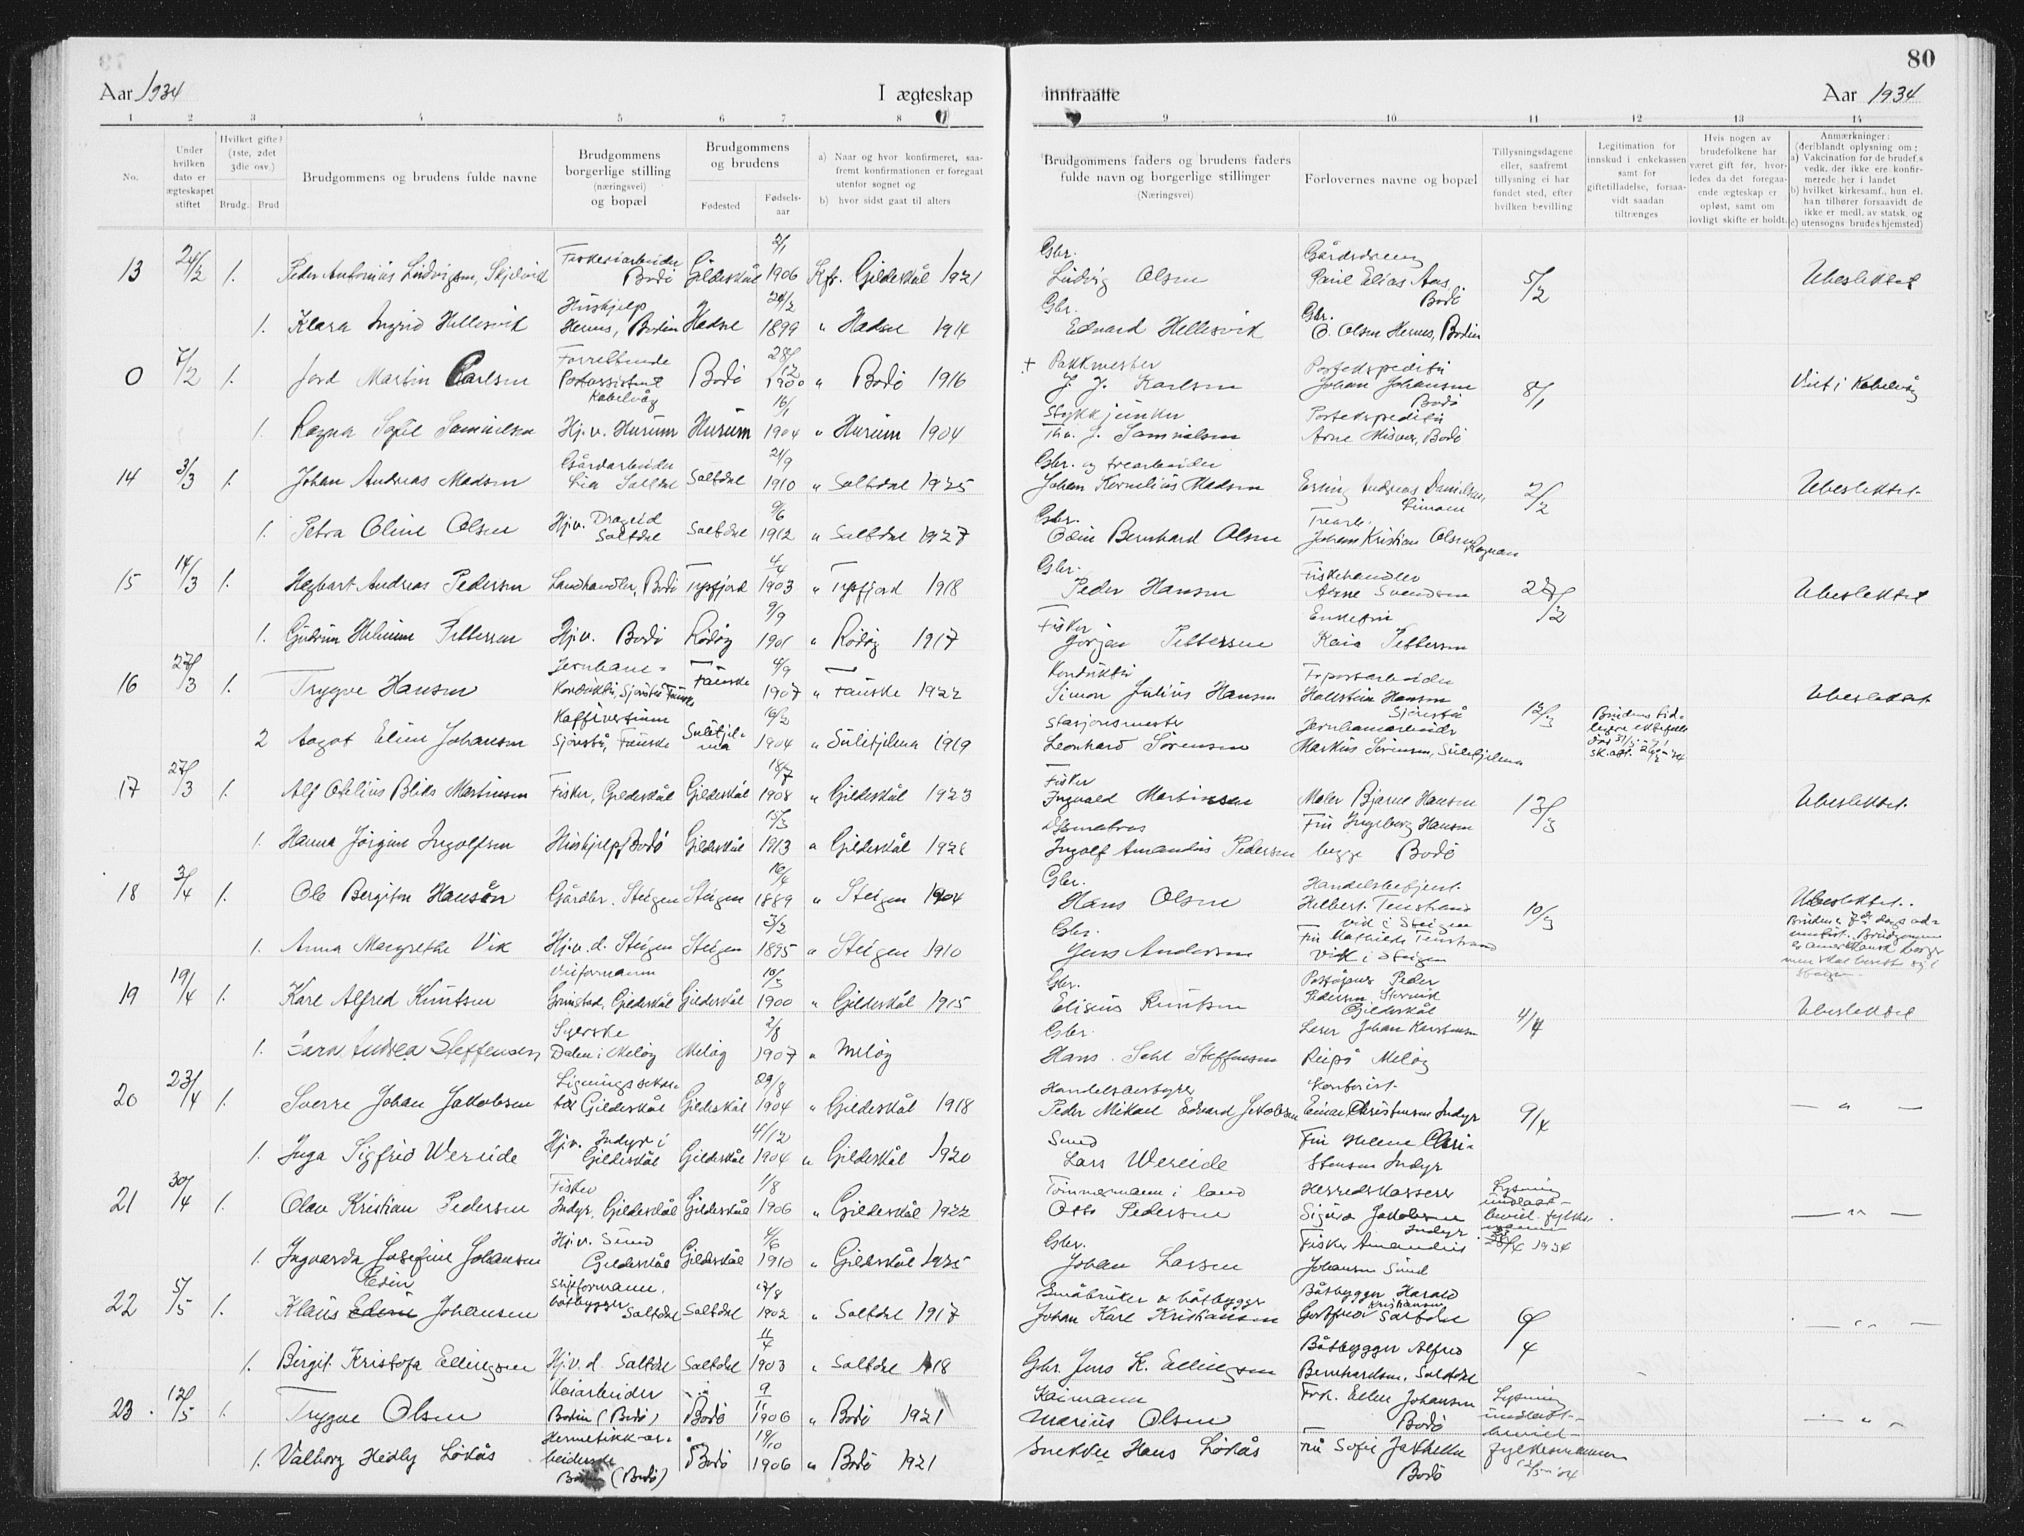 80
Aar 1934
I ægteskap
inntraatte
Aar 1934
1 2 3 4 5 6 7 8 9 10 11 12 13 14
No.
Under hvilken dato er ægteskapet stiftet
Hvilket gifte? (1ste, 2det 3die osv.)
Brudg. Brud
Brudgommens og brudens fulde navne
Brudgommens borgerlige stilling (næringsvei) og bopæl
Brudgommens og brudens
Fødested
Fødsels-aar
a) Naar og hvor konfirmeret, saafremt konfirmationen er foregaat utenfor sognet og
b) hvor sidst gaat til alters
Brudgommens faders og brudens faders fulde navn og borgerlige stillinger (Næringsvei)
Forlovernes navne og bopæl
Tillysningsdagene eller, saafremt tillysning ei har fundet sted, efter hvilken bevilling
Legitimation for innskud i enkekassen samt for giftetilladelse, forsaavidt saadan tiltrænges
Hvis nogen av brudefolkene har været gift før, hvorledes da det foregaaende ægteskap er opløst, samt om lovligt skifte er holdt.
Anmærkninger: (deriblandt oplysning om:
a) Vakcination for de brudef.s vedk. der ikke ere konfirmerede her i landet
b) hvilket kirkesamf., hun el. han tilhører forsaavidt de ikke er medl. av statsk. og
c) utensogns brudes hjemsted)
13 24/2 1. Peder Antonius Ludvigsen, Skjelvik Fiskeriarbeider Bodö Gildeskål 2/1 1906 Kfr. Gildeskål 1921 Gbr. Ludvig Olsen Gårdsdreng Paul Elias Aas, Bodö 5/2 Ubeslektet
1. Klara Ingrid Hellesvik Hushjelp Hernes, Bodin Hadsel 1899 " Hadsel 1914 Gbr. Edvard Hellesvik Gbr. O. Olsen Hernes, Bodin
0 7/2 1. Jord Martin Carlsen Forrettende Postassistent Kabelvåg Bodö 28/12 1900 " Bodö 1916 + Pakkmester J. J. Karlsen Postekspeditör Johan Johansen Bodö 8/1 Viet i Kabelvåg
1. Ragna Sofie Samuelsen Hj.v. Hurum Hurum 16/1 1904 " Hurum 1904 Stykkjunker Th. J. Samuelsen Postekspeditör Arne Misvær, Bodö
14 3/3 1. Johan Andreas Madsen Gårdarbeider Lia Saltdal Saltdal 21/9 1910 " Saltdal 1925 Gbr. og trearbeider Johan Kornelius Madsen Erling Andreas Danielsen, 2/2 Ubeslektet.
1. Petra Oline Olsen Hj.v. Drageid Saltdal Saltdal 9/6 1912 " Saltdal 1927 Gbr. Odin Bernhard Olsen Trearb. Johan Kristian Olsen Rognan
15 14/3 1. Hagbart Andreas Pedersen Landhandler, Bodö Tysfjord 4/4 1903 " Tysfjord 1918 Gbr. Peder Hansen Fiskehandler Arne Svendsen 28/2 Ubeslektet
1. Gudrun Helmine Pettersen Hj.v. Bodö Rödöy 9/9 1901 " Rödöy 1917 Fisker Jörgen Pettersen Enkefru Kaia Pettersen
16 27/3 1. Trygve Hansen Jernbane-Konduktör, Sjönstå Fauske Fauske 4/9 1907 " Fauske 1922 Konduktör Simon Julius Hansen Hallstein Hansen Sjönstå 13/3 Ubeslektet
2 Aagot Eline Johansen Kaffivertinne Sjönstå, Fauske Sulitjelma 16/2 1904 " Sulitjelma 1919 Stasjonsmester Leonhard Sörensen Jernbanearbeider Markus Sörensen, Sulitjelma
17 27/3 1. Alf Otelius Bliks Martinsen Fisker, Gildeskål Gildeskål 18/7 1908 " Gildeskål 1923 Fisker Ingvald Martinssen Maler Bjarne Hansen 13/3 Ubeslektet.
1. Hanna Jörgine Ingolfsen Hushjelp, Bodö Gildeskål 13/3 1913 " Gildeskål 1928 Ingolf Amandus Pedersen Fru Ingeborg Hansen begge Bodö
18 3/4 1. Ole Bergiton Hansen Gårdbr. Steigen Steigen 16/4 1889 " Steigen 1904 Gbr. Hans Olsen Handelsbetjent. Helbert Tenstrand vik i Steigen 10/3 Ubeslektet.
1. Anna Margrethe Vik Hj.v.d. Steigen Steigen 3/2 1895 " Steigen 1910 Gbr. Jens Andersen Fru Mathilde Tenstrand vik i Steigen
19 19/4 1. Karl Alfred Knutsen Grimstad, Gildeskål Gildeskål 10/3 1900 " Gildeskål 1915 Gbr. Eliseus Knutsen Poståpner Peder Pedersen, Storvik Gildeskål 4/4 Ubeslektet
1. Sara Andrea Steffensen Syerske Dalen i Melöy Melöy 2/8 1907 " Melöy Gbr. Hans Steffensen Lærer Johan Karstensen Reipå Melöy
20 23/4 1. Sverre Johan Jakobsen Ligningssekretær Gildeskål Gildeskål 29/8 1904 " Gildeskål 1918 Handelsbestyrer Peder Mikael Edvard Jakobsen Kontorist. Einar Christensen Indyr 9/4 — " —
1. Inga Sigfrid Wereide Hj.v. Indyr i Gildeskål Gildeskål 4/12 1904 " Gildeskål 1920 Smed Lars Wereide Fru Helene Christensen Indyr
21 30/4 1. Olav Kristian Pedersen Fisker Indyr, Gildeskål Gildeskål 1/8 1906 " Gildeskål 1922 Tömmermann i land Otto Pedersen Herredskasserer Sigurd Jakobsen Indyr Lysning undlatt- bevil. fylkesmannen 28/4 1934 — " —
1. Ingvarda Josefine Johansen Hj.v. Sund Gildeskål Gildeskål 4/6 1910 " Gildeskål 1925 Gbr. Johan Larsen Fisker Amandus Johansen Sund
22 5/5 1. Klaus Edin Johansen båtbygger Saltdal Saltdal 1902 " Saltdal 1917 Småbruker & båtbygger Johan Karl Kristiansen Båtbygger Harald Gotfred Kristiansen Saltdal 6/4 — " —
1. Birgit Kristofa Ellingsen Hj.v.d. Saltdal Saltdal 11/4 1903 " Saltdal 1918 Gbr. Jens K. Ellingsen Båtbygger Alfred Bernhardsen, Saltdal
23 12/5 1. Trygve Olsen Kaiarbeider Bodin (Bodö) Bodö 9/11 1906 " Bodö 1921 Kaimann Marius Olsen Frk. Ellen Johansen Bodö Lysning undlatt- bevil- fylkesmannen 12/5 '34 — " —
1. Valborg Hedly Lökås Hermetikkarbeiderske Bodin (Bodö) Bodö 19/10 1906 " Bodö 1921 Snekker Hans Lökås Fru Sofie Jakhelln Bodö